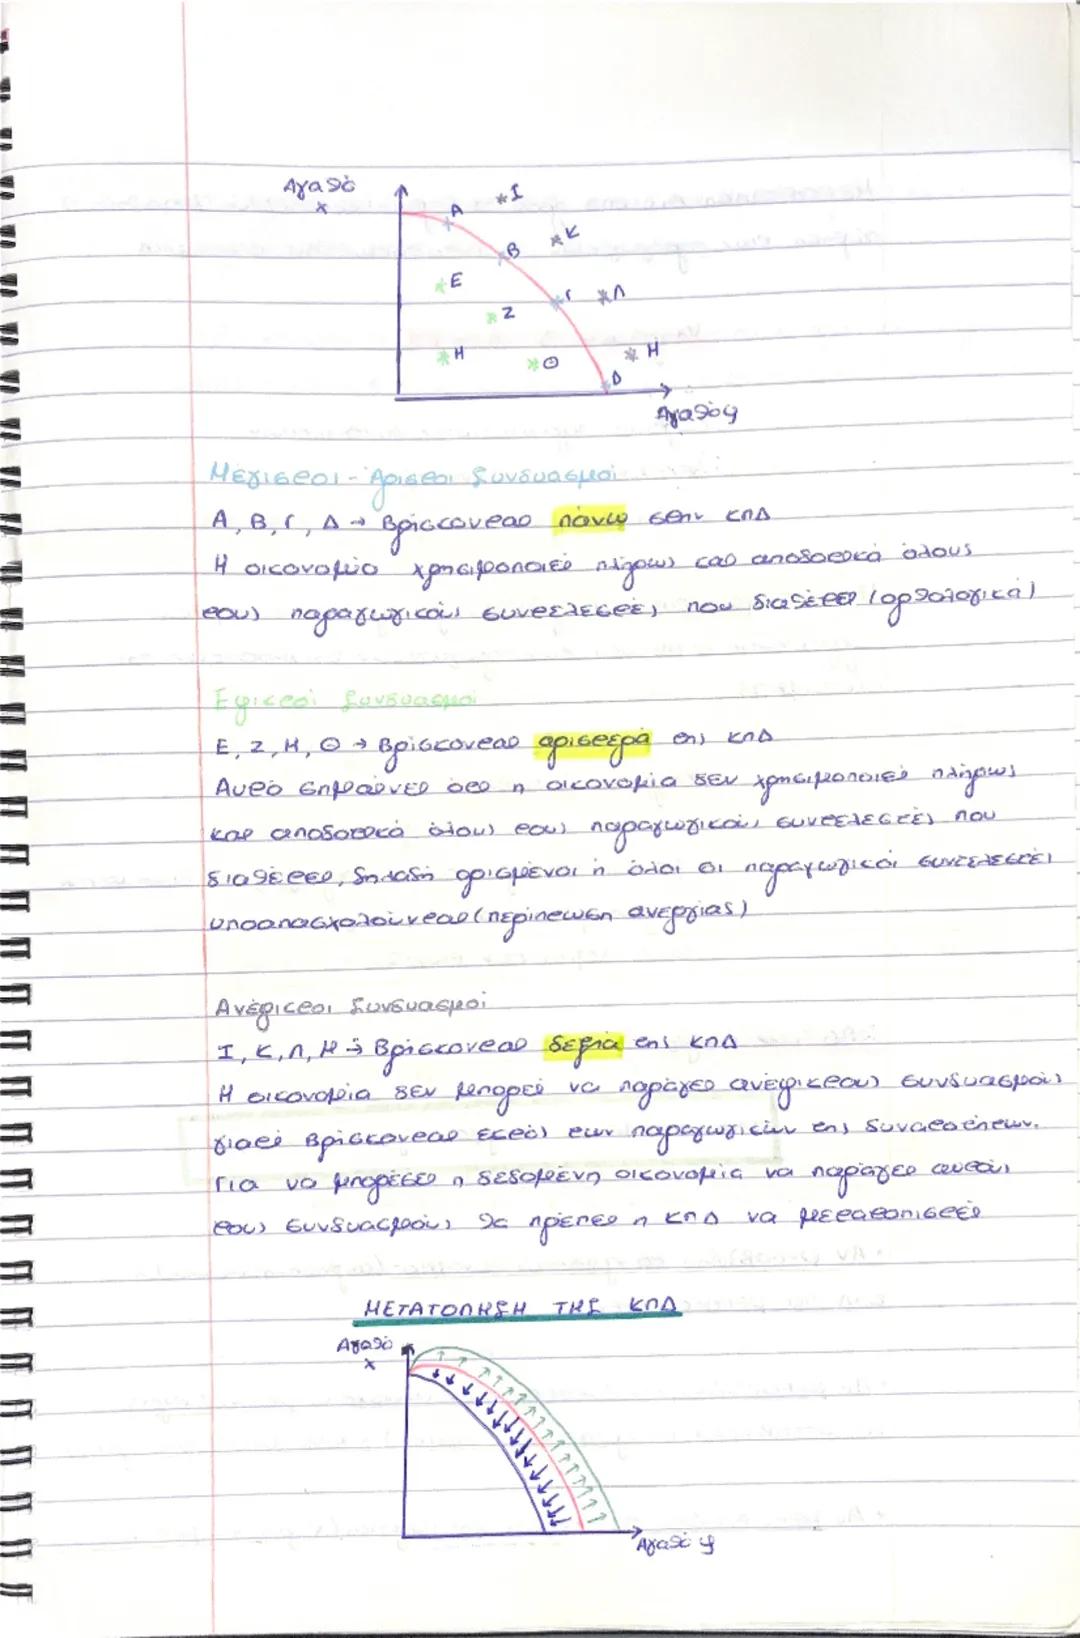 Αγαθό
Χ
*Ι
Α
*Κ
Β
*Ε
Γ *Λ
*Ζ
*Η
*Θ
*Μ
Δ
Αγαθό ψ
Μέγιστοι - Άριστοι Συνδυασμοί
Α, Β, Γ, Δ → Βρίσκονται πάνω στην ΚΠΔ
Η οικονομία χρησιμοποιεί πλήρως και αποδοτικά όλους
τους παραγωγικούς συντελεστές που διαθέτει (ορθολογικά)
Εφικτοί Συνδυασμοί
Ε, Ζ, Η, Θ → Βρίσκονται αριστερά της ΚΠΔ
Αυτό σημαίνει ότι η οικονομία δεν χρησιμοποιεί πλήρως
και αποδοτικά όλους τους παραγωγικούς συντελεστές που
διαθέτει, δηλαδή ορισμένοι ή όλοι οι παραγωγικοί συντελεστές
υποαπασχολούνται (περίπτωση ανεργίας)
Ανέφικτοι Συνδυασμοί
Ι, Κ, Λ, Μ → Βρίσκονται δεξιά της ΚΠΔ
Η οικονομία δεν μπορεί να παράγει ανέφικτους συνδυασμούς
γιατί βρίσκονται εκτός των παραγωγικών της δυνατοτήτων.
Για να μπορέσει η δεδομένη οικονομία να παράγει αυτούς
τους συνδυασμούς θα πρέπει η ΚΠΔ να μετατοπιστεί
ΜΕΤΑΤΟΠΗΣΗ ΤΗΣ ΚΠΔ
Αγαθό
Χ
Αγαθό ψ